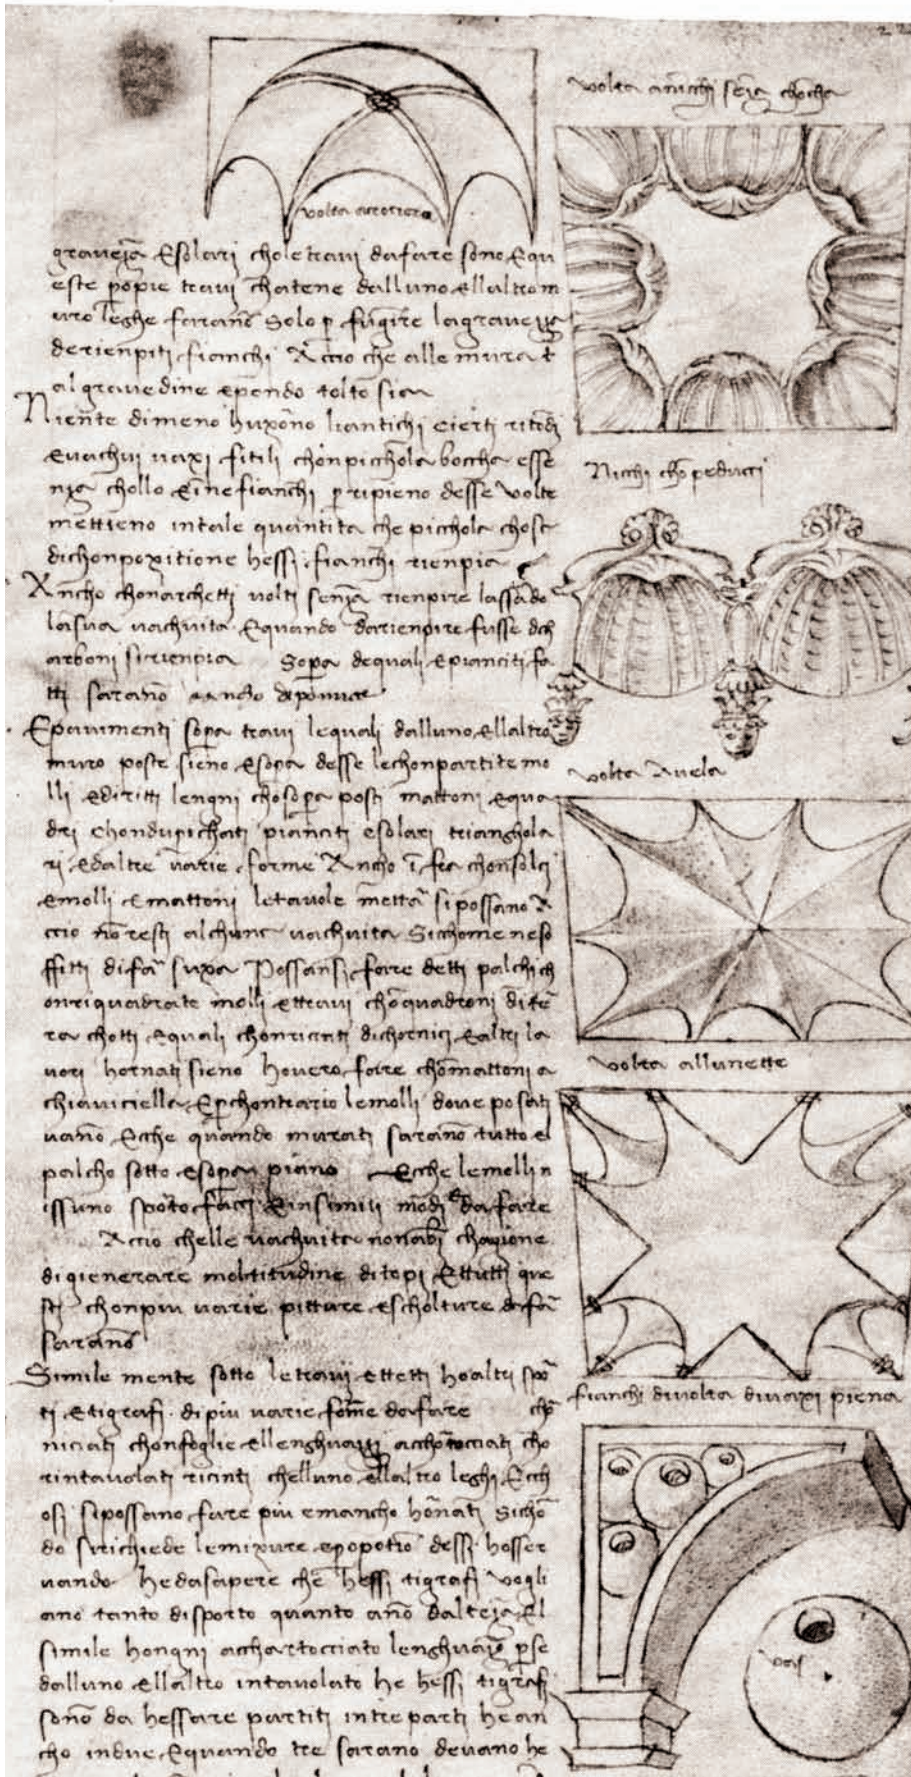 volta acrociera
graveza Esolari choletravi dafare sono Equ
este propie travi chatene dalluno ellaltro m
uro leghe farano Solo p fugire lagraveza
derienpiti fianchi Accio che alle mura t
al gravedine epondo tolto sia
Niente dimeno huxono liantichi cierti ritodi
evachui vaxi fitili chonpicchola boccha esse
nza chollo Einefianchi p ripieno desse volte
mettieno intale quantita che picchola chosa
dichonpoxitione hessi fianchi rienpia
Ancho chonarchetti volti senza rienpire lassado
lasua vachuita Equando darienpire fusse dch
arboni sirienpia Sopa dequali epianciti fa
tti sarano di pomice
Epavimenti sopa travi lequali dalluno ellaltro
muro poste sieno esopa desse lechonpartite mo
lli ediritti lengni chosopa posti mattoni equa
dri chondupichati pianciti esolari trianghola
ri edaltre varie forme Ancho i fra chonsolci
emolli emattoni letavole metta sipossano A
ccio no resti alchuna vachuita Sichome neso
ffitti di fa suxa Possansi fare detti palchi ch
onriquadrate molli ettravi choquadroni dite
ra chotti equali chonricinti dichornici ealtri la
vori hornati sieno hovero fare chomattoni a
chiaviciella Epchontrario lemolli dove posati
vano Ecche quando murati sarano tutto el
palcho sotto esopa piano Ecche lemolli n
issuno sporto facci Einsimili modi da fare
Accio chelle vachuita nonabi chagione
digienerare moltitudine ditopi Ettutti que
sti chonpiu varie pitture escholture di fa
sarano
Simile mente sotto letravi ettetti hoaltri spo
ti etigrafi dipiu varie fome dafare cho
niciati chonfoglie ellenghuaggi acchartocciati cho
rintavolati ricinti chelluno ellaltro leghi Ecch
osi sipossano fare piu emancho honati Sicho
do sirichiede lemixure epopotio dessi hosser
vando Hedasapere che hessi tigrafi vogli
ano tanto disporto quanto ano dalteza El
simile hongni acchartocciato lenghuaio p se
dalluno ellaltro intavolato he hessi tigrafi
sono da hessare partiti intre parti he an
cho indue Equando tre sarano devano he
volta anicchi senza chocha
Nicchi cho peducci
volta Avela
volta allunette
fianchi divolta divaxi piena
vaso